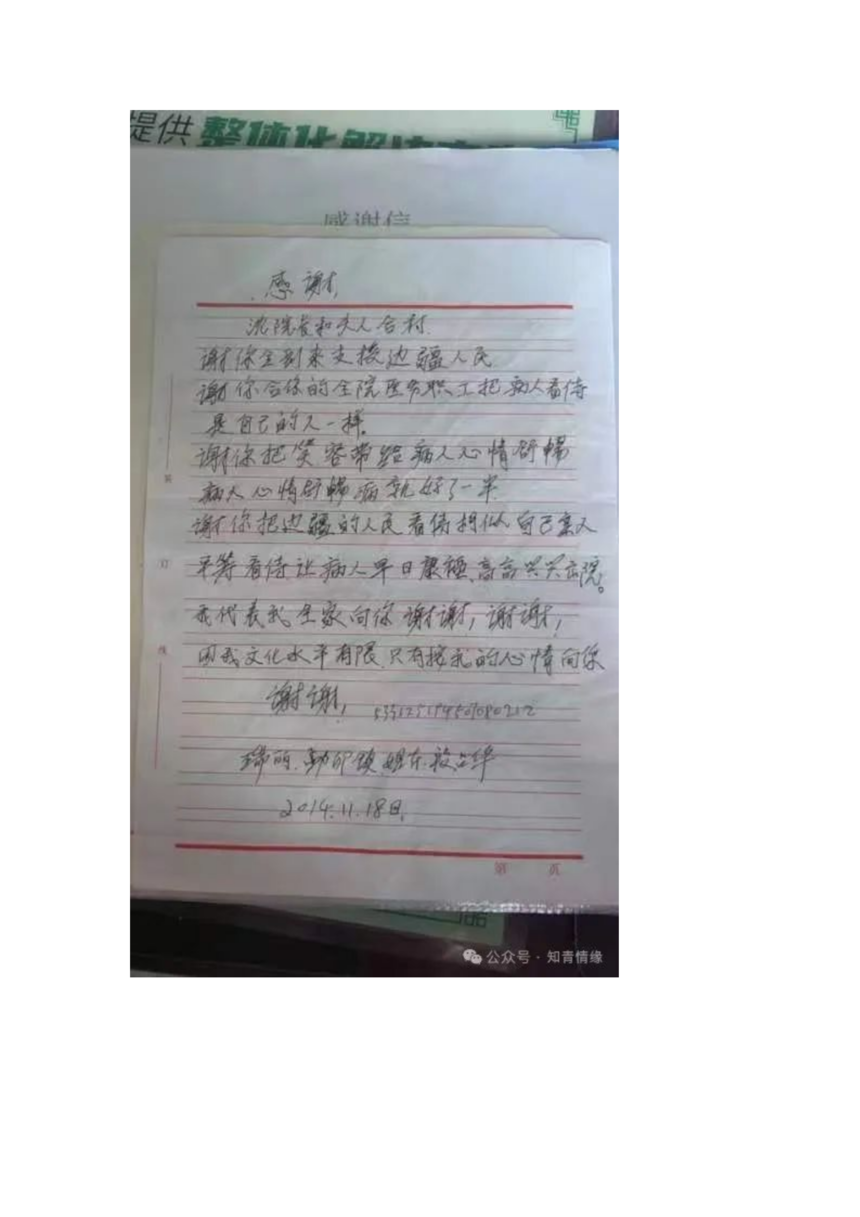 提供 整体化解决
感谢信
感谢
沈院长和夫人合村.
谢你全到来支援边疆人民
谢你合你的全院医务职工把病人看待
是自己的人一样.
谢你把笑容带给病人心情舒畅
病人心情舒畅病就好了一半.
谢你把边疆的人民看待相似自己亲人
平等看待.让病人早日康复、高高兴兴出院。
我代表我全家向你谢谢,谢谢,
因我文化水平有限.只有按我的心情向你
谢谢,
瑞丽.勐卯镇.姐东.
2014.11.18日.
装
订
线
第 页
公众号·知青情缘